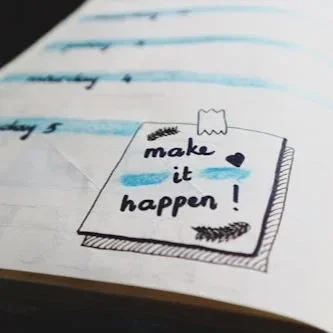 saturday 4
day 5
make
it
happen !